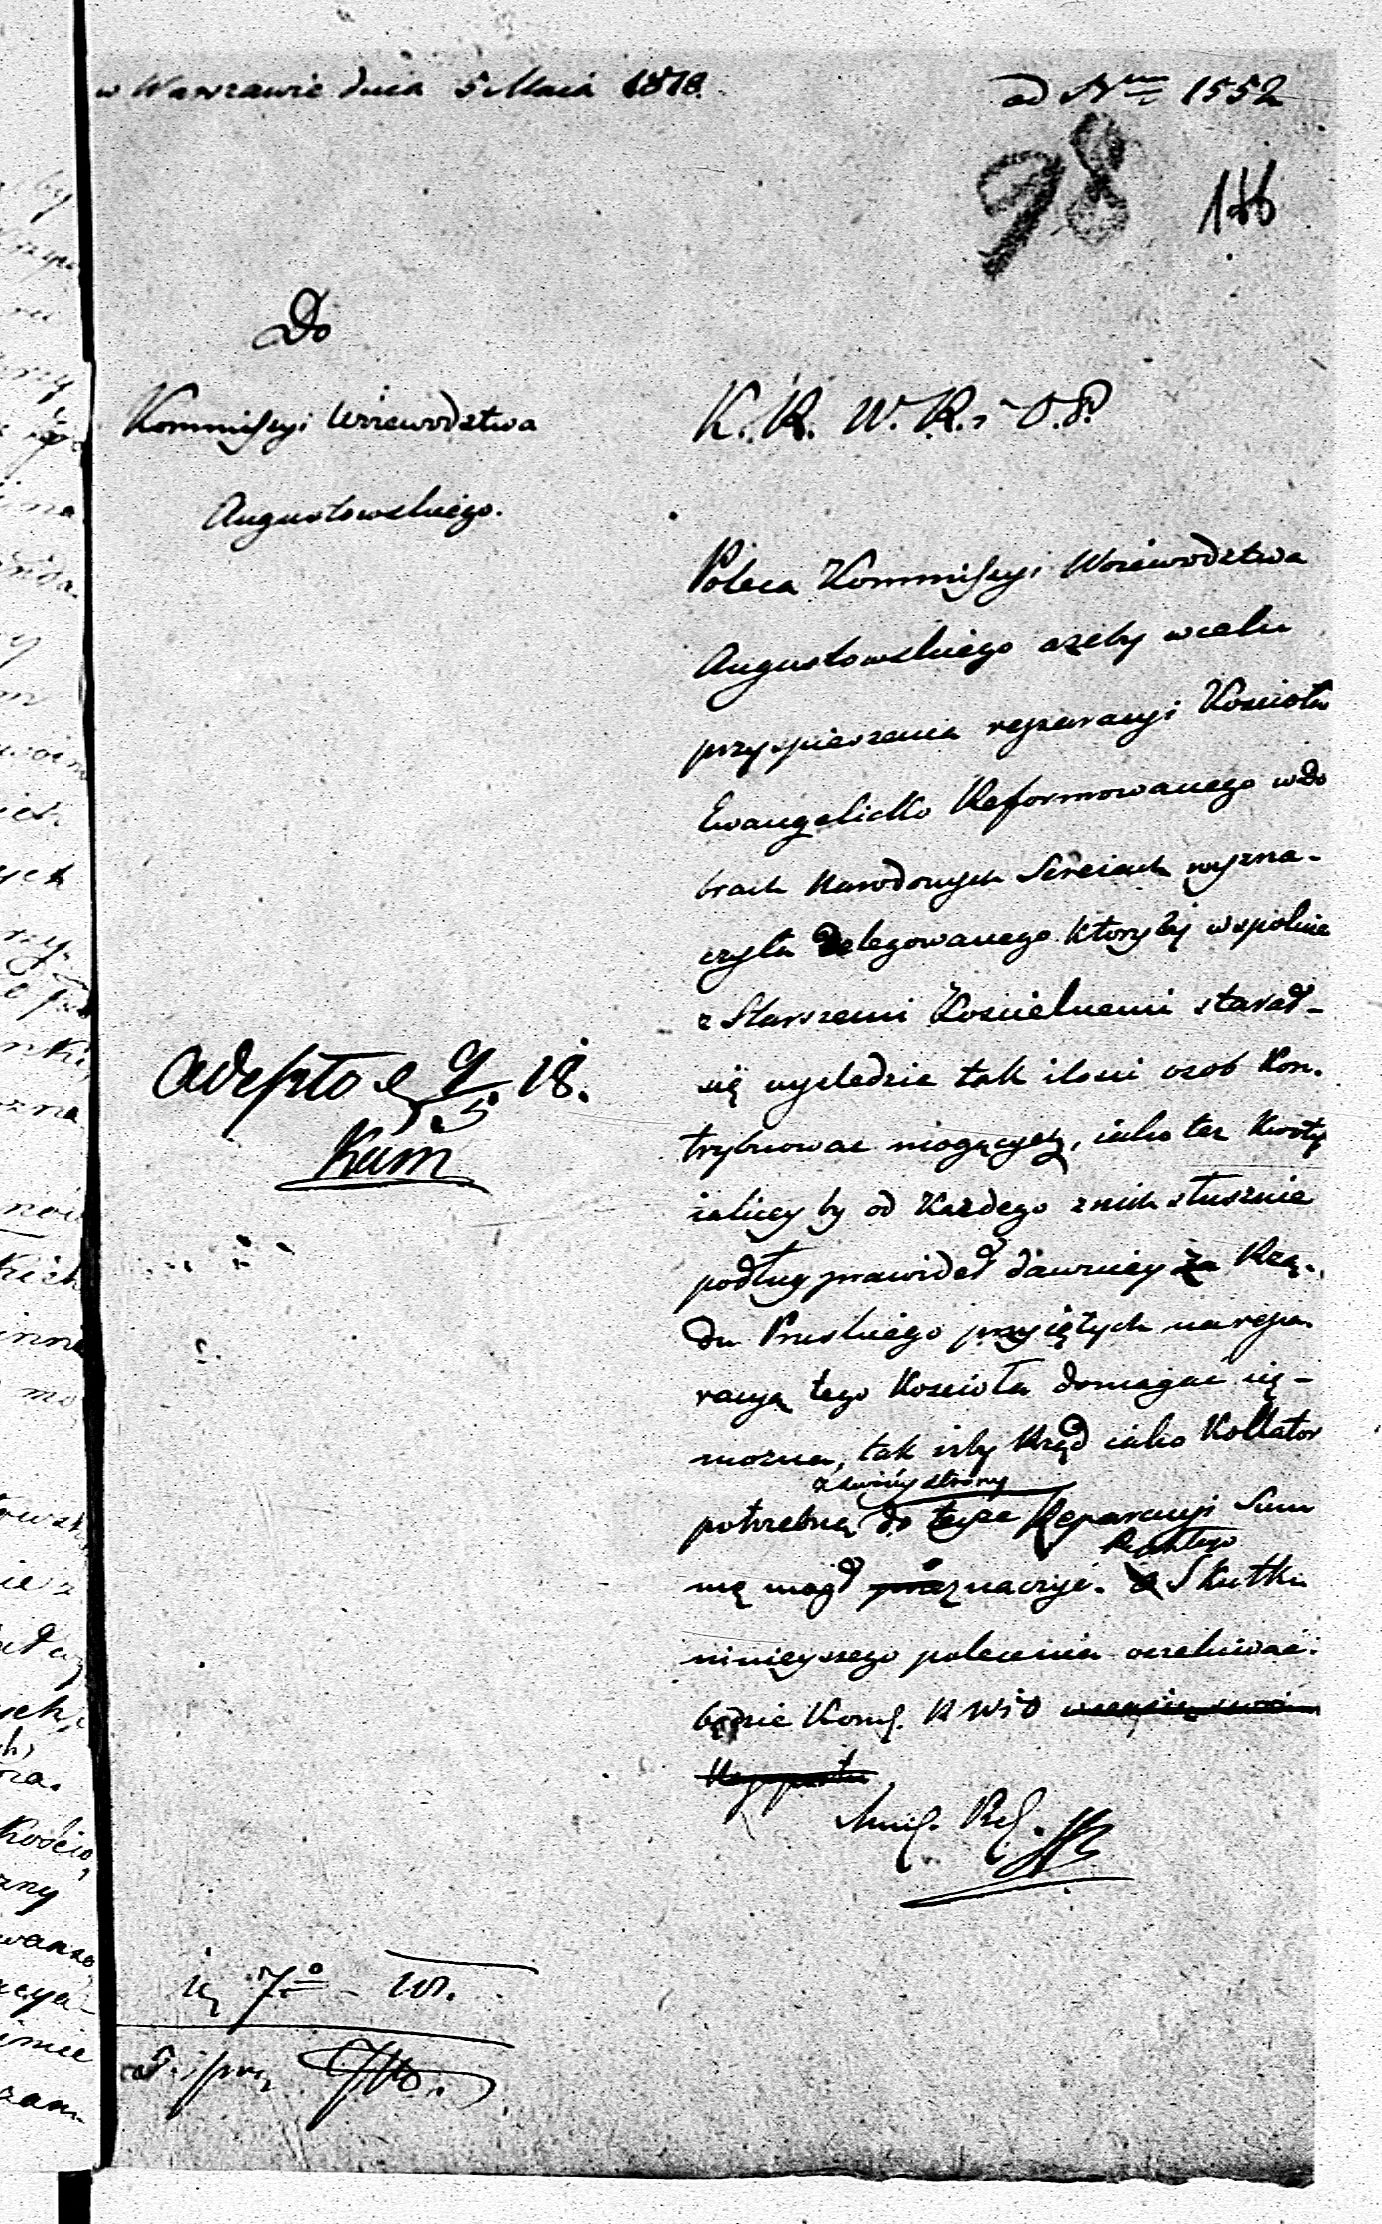 w Warszawie dnia 5 Maia 1818.
ad Nrum 1552
98
Do
Kommissyi Woiewodztwa
Augustowskiego.
K. R. W. R. i O. P.
Poleca Kommissyi Woiewodztwa
Augustowskiego ażeby w celu
przyspieszenia reparacyi Kościoła
Ewangelicko Reformowanego w do
brach Narodowych Sereiach wyzna-
czyła Delegowanego któryby wspolnie
z Starszemi Kościelnemi starał
się wyśledzić tak ilości osob Kon-
trybuować mogących, iako też kwoty
iakiey by od Każdego z nich słusznie
podług prawideł dawniey za Rzą-
du Pruskiego przyiętych na repa-
racyą tego Kościoła domagać się
można, tak iżby Rząd iako Kollator
z swoiey strony
potrzebną do teyże Reparacyi Sum
mę mógł znaczyć. Skutku
ninieyszego polecenia oczekiwać
będzie Komss. R W i O
Raportu
w.